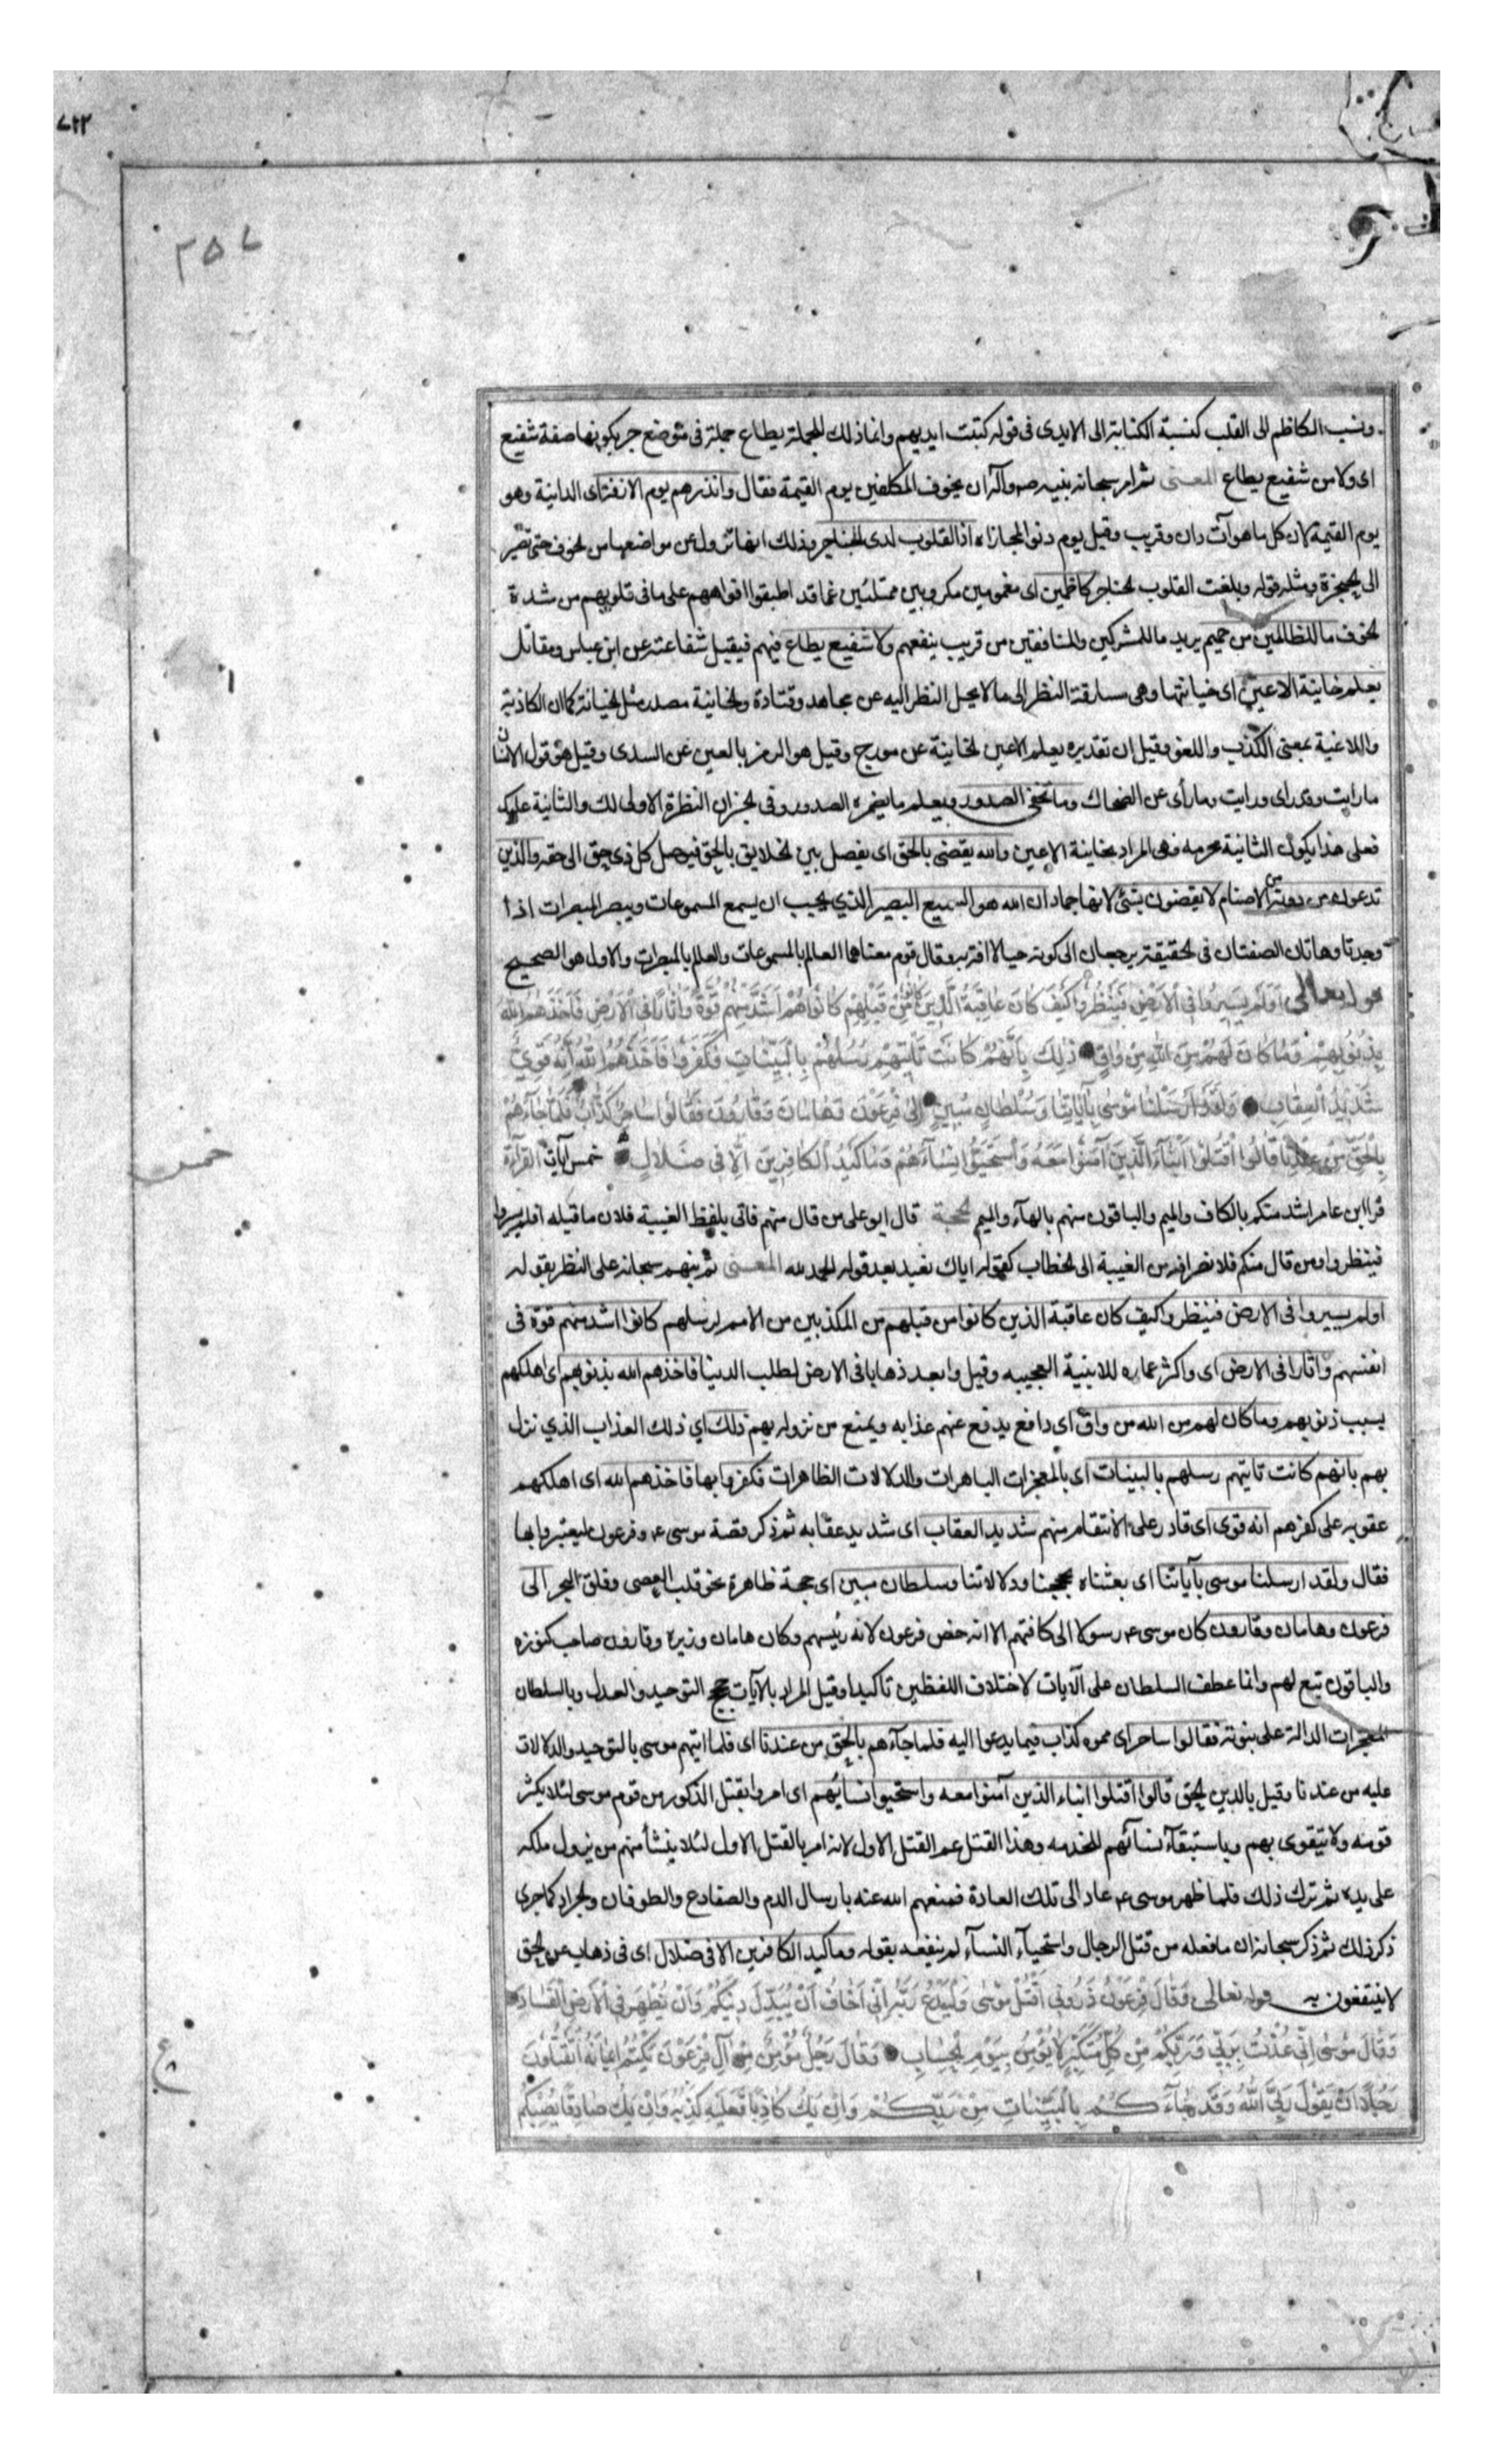 ٧٢٢
٢٥٧
ونسب الكاظم الى القلب كنسبة الكتابة الى الايدى فى قوله كتبت ايديهم وانما ذلك للجملة يطاع جملة فى موضع جر بكونها صفة شفيع
اى ولا من شفيع يطاع المعنى ثم امر سبحانه نبيه ص وآله ان يخوف المكلفين يوم القيمة فقال وانذرهم يوم الازفة اى الدانية وهو
يوم القيمة لان كل ما هو آت دان وقريب وقيل يوم دنو المجازاه اذ القلوب لدى الحناجر وذلك انها تزول عن مواضعها من الخوف حتى تصير
الى الحنجرة ومثله قوله وبلغت القلوب الحناجر كاظمين اى مغمومين مكروبين ممتلئين غما قد اطبقوا افواههم على ما فى قلوبهم من شدة
الخوف ما للظالمين من حميم يريد ما للمشركين والمنافقين من قريب ينفعهم ولا شفيع يطاع فيهم فيقبل شفاعته عن ابن عباس ومقاتل
يعلم خاينة الاعين اى خيانتها وهى مسارقة النظر الى ما لا يحل النظر اليه عن مجاهد وقتادة والخاينة مصدر مثل الخيانة كما ان الكاذبة
واللاغية بمعنى الكذب واللغو وقيل ان تقديره يعلم الاعين الخاينة عن مورج وقيل هو الرمز بالعين عن السدى وقيل هو قول الانسان
ما رايت وقد راى ورايت وما رأى عن الضحاك وما تخفى الصدور ويعلم ما يضمره الصدور وفى الخبر ان النظرة الاولى لك والثانية عليك
فعلى هذا يكون الثانية محرمه فهى المراد بخاينة الاعين والله يقضى بالحق اى يفصل بين الخلايق بالحق فيوصل كل ذى حق الى حقه والذين
تدعون من دونه من الاصنام لا يقضون بشئ لانها جماد ان الله هو السميع البصير الذي يجب ان يسمع المسموعات ويبصر المبصرات اذا
وجدتا وهاتان الصفتان فى الحقيقة يرجعان الى كونه حيا لا افة به وقال قوم معناهما العالم بالمسموعات والعالم بالمبصرات والاول هو الصحيح
قوله تعالى اَوَلَمْ يَسِيرُوا فِى الْاَرْضِ فَيَنْظُرُوا كَيْفَ كَانَ عَاقِبَةُ الَّذِينَ كَانُوا مِنْ قَبْلِهِمْ كَانُوا هُمْ اَشَدَّ مِنْهُمْ قُوَّةً وَاٰثَارًا فِى الْاَرْضِ فَاَخَذَهُمُ اللهُ
بِذُنُوبِهِمْ وَمَا كَانَ لَهُمْ مِنَ اللهِ مِنْ وَاقٍ ذٰلِكَ بِاَنَّهُمْ كَانَتْ تَاْتِيهِمْ رُسُلُهُمْ بِالْبَيِّنَاتِ فَكَفَرُوا فَاَخَذَهُمُ اللهُ اِنَّهُ قَوِىٌّ
شَدِيدُ الْعِقَابِ وَلَقَدْ اَرْسَلْنَا مُوسٰى بِآيَاتِنَا وَسُلْطَانٍ مُبِينٍ اِلٰى فِرْعَوْنَ وَهَامَانَ وَقَارُونَ فَقَالُوا سَاحِرٌ كَذَّابٌ فَلَمَّا جَآءَهُمْ
بِالْحَقِّ مِنْ عِنْدِنَا قَالُوا اقْتُلُوا اَبْنَآءَ الَّذِينَ آمَنُوا مَعَهُ وَاسْتَحْيُوا نِسَآءَهُمْ وَمَا كَيْدُ الْكَافِرِينَ اِلَّا فِى ضَلَالٍ خمس آيات القرآءة
خمس
قرا ابن عامر اشد منكم بالكاف والميم والباقون منهم بالهآء والميم الحجة قال ابو على من قال منهم فاتى بلفظ الغيبة فلان ما قبله افلم يسيروا
فينظروا ومن قال منكم فلانصرافه من الغيبة الى الخطاب كقوله اياك نعبد بعد قوله الحمد لله المعنى ثم نبههم سبحانه على النظر بقوله
اولم يسيروا فى الارض فينظروا كيف كان عاقبة الذين كانوا من قبلهم من المكذبين من الامم لرسلهم كانوا اشد منهم قوة فى
انفسهم واثارا فى الارض اى واكثر عماره للابنية العجيبه وقيل وابعد ذهابا فى الارض لطلب الدنيا فاخذهم الله بذنوبهم اى اهلكهم
بسبب ذنوبهم وما كان لهم من الله من واق اى دافع يدفع عنهم عذابه ويمنع من نزوله بهم ذلك اي ذلك العذاب الذي نزل
بهم بانهم كانت تاتيهم رسلهم بالبينات اى بالمعجزات الباهرات والدلالات الظاهرات فكفروا بها فاخذهم الله اى اهلكهم
عقوبه على كفرهم انه قوى اى قادر على الانتقام منهم شديد العقاب اى شديد عقابه ثم ذكر قصة موسى ع وفرعون ليعتبروا بها
فقال ولقد ارسلنا موسى بآياتنا اى بعثناه بحججنا ودلالاتنا وسلطان مبين اى حجة ظاهرة نحو قلب العصى وفلق البحر الى
فرعون وهامان وقارون كان موسى ع رسولا الى كافتهم الا انه خص فرعون لانه رئيسهم وكان هامان وزيره وقارون صاحب كنوزه
والباقون تبع لهم وانما عطف السلطان على الآيات لاختلاف اللفظين تاكيدا وقيل المراد بالآيات حجج التوحيد والعدل وبالسلطان
المعجزات الدالة على نبوته فقالوا ساحر اى مموه كذاب فيما يدعوا اليه فلما جآءهم بالحق من عندنا اى فلما اتيهم موسى بالتوحيد والدلالات
عليه من عندنا وقيل بالدين الحق قالوا اقتلوا ابناء الذين آمنوا معه واستحيوا نسائهم اى امروا بقتل الذكور من قوم موسى لئلا يكثر
قومه ولا يتقوى بهم وباستبقآء نسآئهم للخدمه وهذا القتل غير القتل الاول لانه امر بالقتل الاول لئلا ينشأ منهم من يزول ملكه
على يده ثم ترك ذلك فلما ظهر موسى ع عاد الى تلك العادة فمنعهم الله عنه بارسال الدم والضفادع والطوفان والجراد كما جرى
ذكر ذلك ثم ذكر سبحانه ان ما فعله من قتل الرجال واستحيآء النسآء لم ينفعه بقوله وما كيد الكافرين الا فى ضلال اى فى ذهاب عن الحق
لا ينتفعون به قوله تعالى وَقَالَ فِرْعَوْنُ ذَرُونِى اَقْتُلْ مُوسٰى وَلْيَدْعُ رَبَّهُ اِنِّى اَخَافُ اَنْ يُبَدِّلَ دِينَكُمْ وَاَنْ يُظْهِرَ فِى الْاَرْضِ الْفَسَادَ
وَقَالَ مُوسٰى اِنِّى عُذْتُ بِرَبِّى وَرَبِّكُمْ مِنْ كُلِّ مُتَكَبِّرٍ لَا يُؤْمِنُ بِيَوْمِ الْحِسَابِ وَقَالَ رَجُلٌ مُؤْمِنٌ مِنْ آلِ فِرْعَوْنَ يَكْتُمُ اِيمَانَهُ اَتَقْتُلُونَ
رَجُلًا اَنْ يَقُولَ رَبِّىَ اللهُ وَقَدْ جَآءَكُمْ بِالْبَيِّنَاتِ مِنْ رَبِّكُمْ وَاِنْ يَكُ كَاذِبًا فَعَلَيْهِ كَذِبُهُ وَاِنْ يَكُ صَادِقًا يُصِبْكُمْ